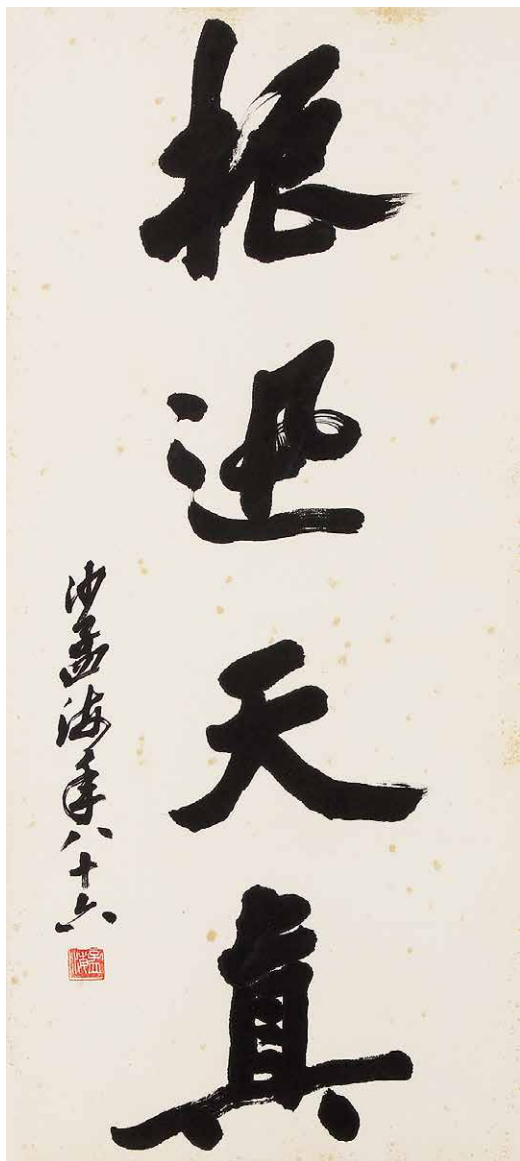 振迅天真
沙孟海年八十六
孟海